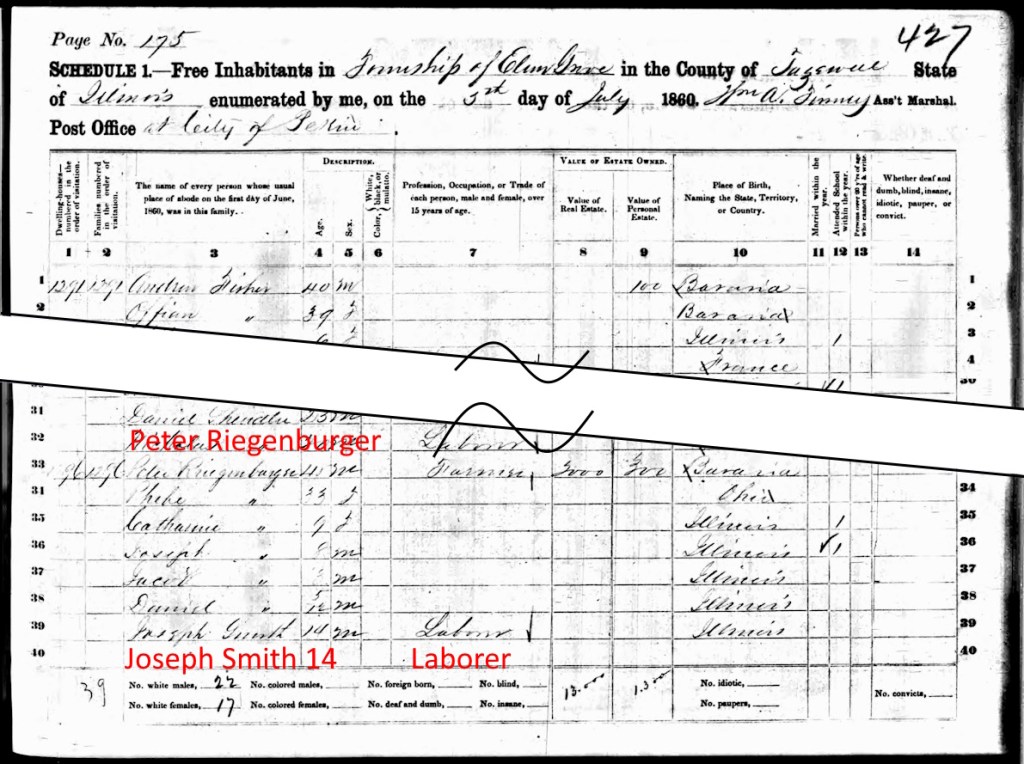 Page No. 175
427
SCHEDULE 1.—Free Inhabitants in Township of Elm Grove in the County of Tazewell State
of Illinois enumerated by me, on the 3rd day of July 1860. Wm A. Tinney Ass't Marshal.
Post Office at City of Pekin.
Dwelling-houses—numbered in the order of visitation.
Families numbered in the order of visitation.
The name of every person whose usual place of abode on the first day of June, 1860, was in this family.
DESCRIPTION.
Age.
Sex.
Color, White, black, or mulatto.
Profession, Occupation, or Trade of each person, male and female, over 15 years of age.
VALUE OF ESTATE OWNED.
Value of Real Estate.
Value of Personal Estate.
Place of Birth, Naming the State, Territory, or Country.
Married within the year.
Attended School within the year.
Persons over 20 y'rs of age who cannot read & write.
Whether deaf and dumb, blind, insane, idiotic, pauper, or convict.
1 2 3 4 5 6 7 8 9 10 11 12 13 14
1 1291 1291 Andrew Fisher 40 m 100 Bavaria 1
2 " 39 f Bavaria 2
f Illinois 1 3
France 4
30
31 Daniel 23 m
32 Labour
Peter Riegenburger
33 1296 1296 Peter Riegenburger 41 m Farmer 3000 300 Bavaria
34 Phebe " 33 f Ohio 34
35 Catharine " 9 f Illinois 1 35
36 Joseph " m Illinois 1 36
37 Jacob " m Illinois 37
38 Daniel " m Illinois 38
39 Joseph Smith 14 m Labour Illinois 39
40 40
Joseph Smith 14 Laborer
39 No. white males, 22 No. colored males, No. foreign born, No. blind, No. idiotic,
No. white females, 17 No. colored females, No. deaf and dumb, No. insane, No. paupers, No. convicts,